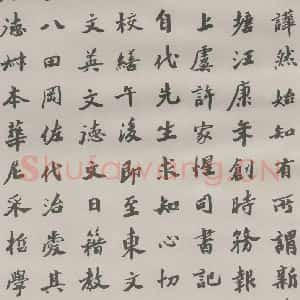 譁然始知有所謂新
塘汪康年創時務報
上虞許家惺司書記
自代先生求知心切
校繕午後即至東文
文英文德文日籍教
八田岡佐代治處其
德叔本華尼采哲學
Shufawang.CN